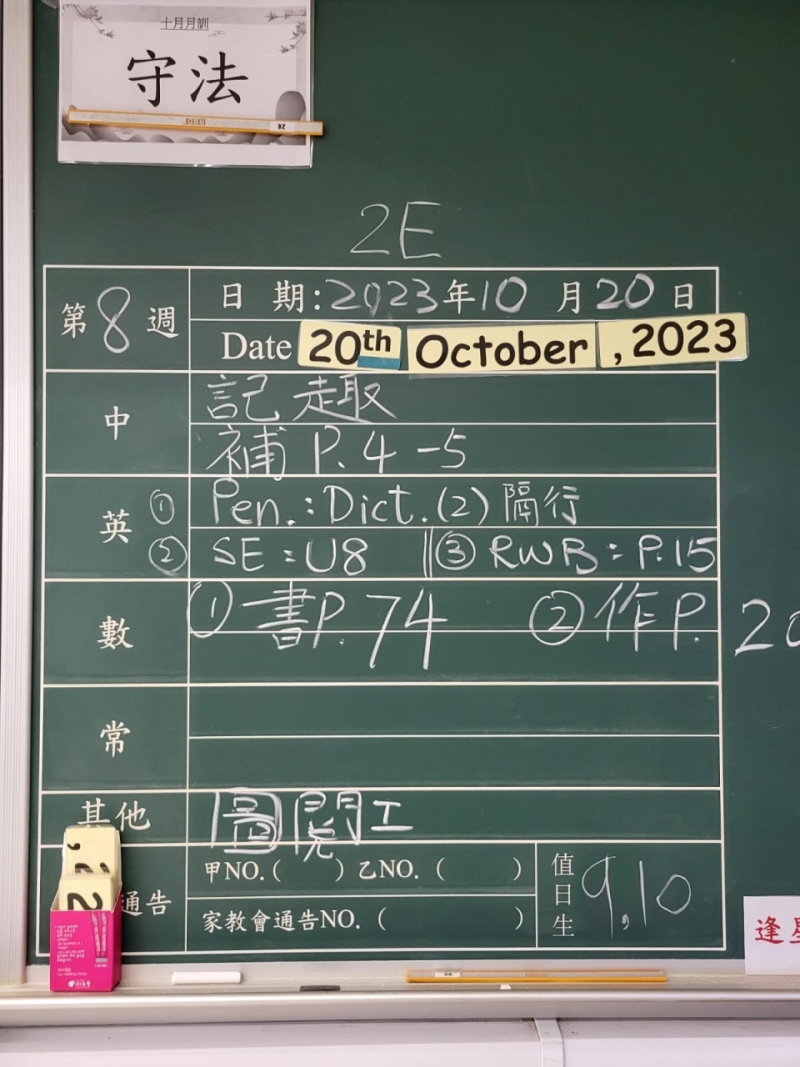 十月月訓
守法
2E
第8週
日 期:2023年10月20日
Date 20th October , 2023
中
記趣
補 P.4-5
英
① Pen.: Dict.(2) 隔行
② SE: U8 ③ RWB: P.15
數
① 書P.74 ② 作P.20
常
其他
圖閱工
通告
甲NO.( ) 乙NO. ( )
家教會通告NO. ( )
值日生
9,10
逢星